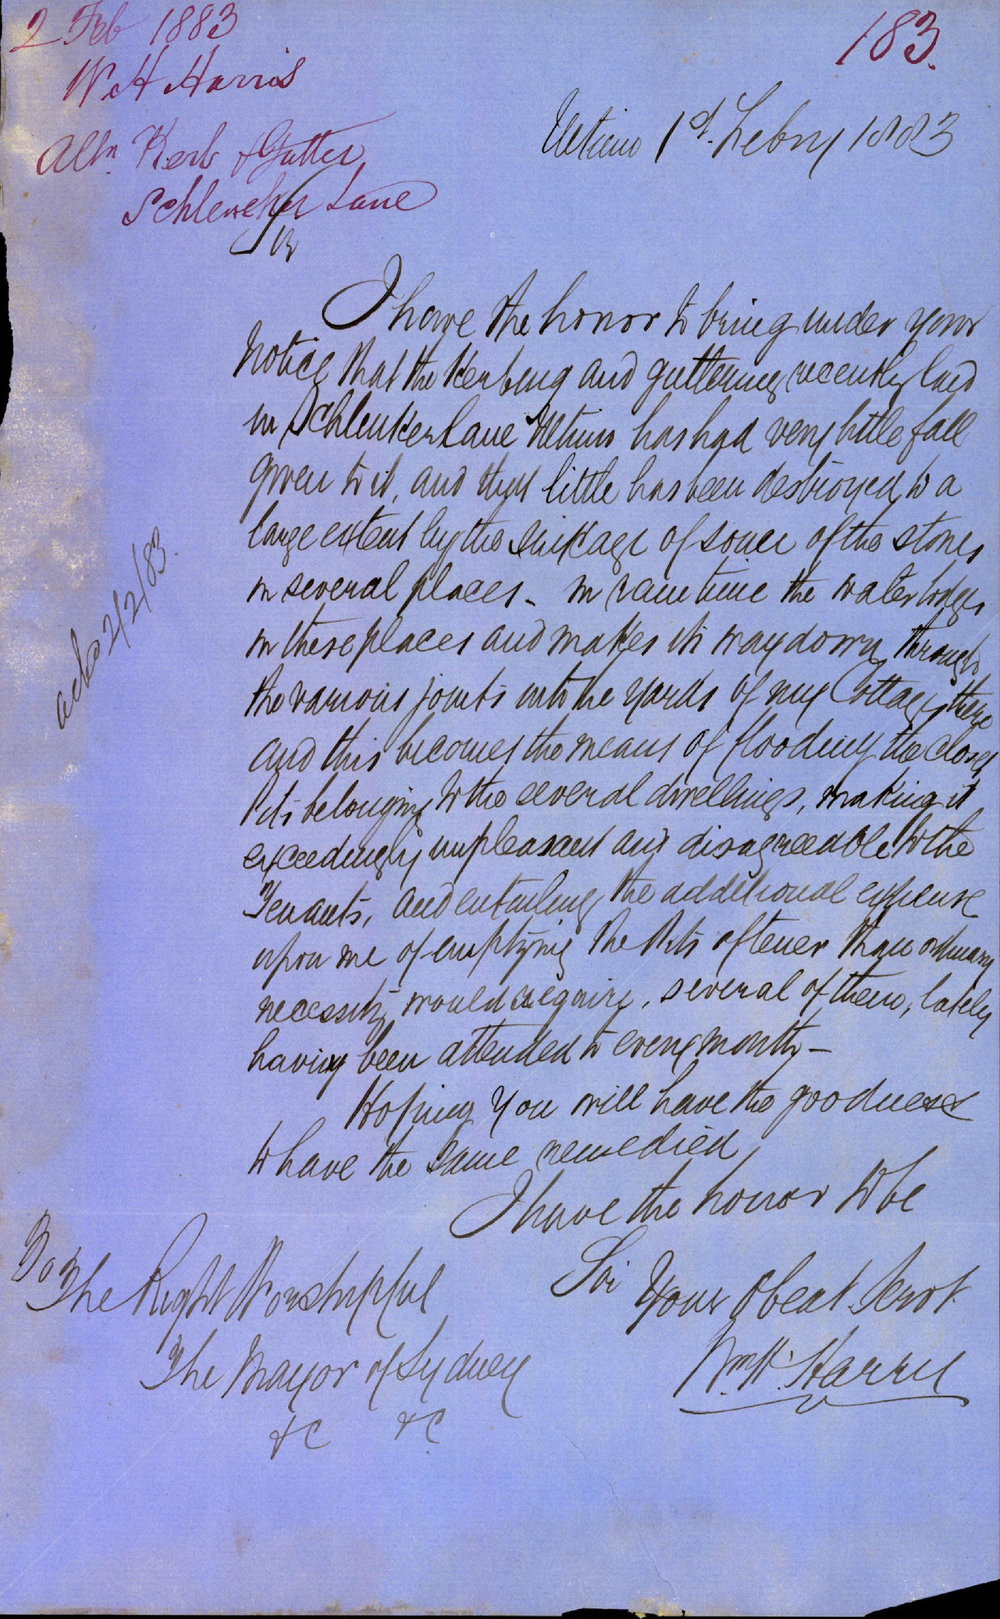 2 Feb 1883
W H Harris
Altn. Kerb & Gutter
Schlencker Lane
183.
Ultimo 1st. Febry 1883
Sir
I have the honor to bring under your
Notice that the Kerbing and guttering recently laid
in Schlenker Lane Ultimo has had very little fall
given to it, and that little has been destroyed to a
large extent by the sinkage of some of the stones
in several places - in rain time the water lodges
in these places and makes its way down through
the various joints into the yards of my Cottages there
and this becomes the means of flooding the closet
Pits belonging to the several dwellings, making it
exceedingly unpleasant and disagreeable to the
Tenants, and entailing the additional expense
upon me of emptying the Pits oftener than ordinary
necessity would require, several of them, lately
having been attended to every month -
Hoping you will have the goodness
to have the same remedied
I have the honor to be
Sir Your Obedt. Servt.
Wm. H. Harris
To
The Right Worshipful
The Mayor of Sydney
&c &c
2/2/83.